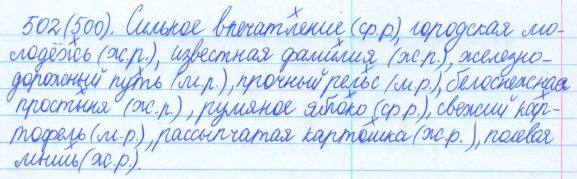 502(500). Сильное впечатление (ср.р), городская мо-
лодёжь (ж.р.), известная фамилия (ж.р.), железно-
дорожный путь (м.р.), прочный рельс (м.р.), белоснежная
простыня (ж.р.), румяное яблоко (ср.р.), свежий кар-
тофель (м.р.), рассыпчатая картошка (ж.р.), полевая
мышь (ж.р.).